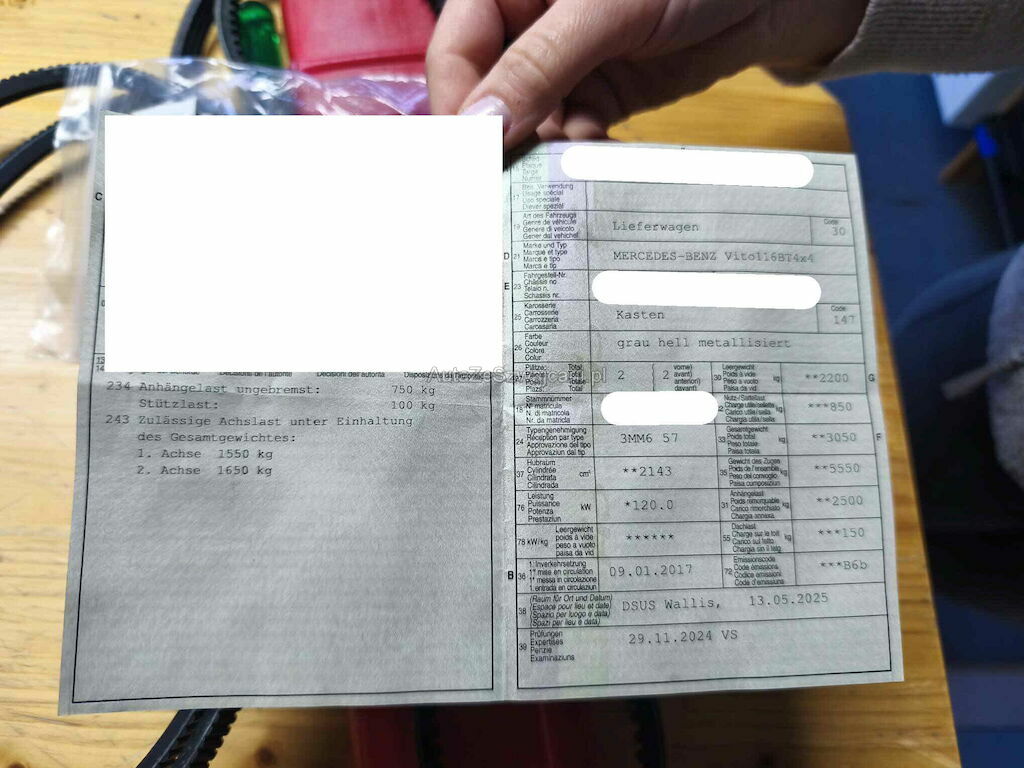 C
Décisions de l'autorité Decisioni dell'autorità
234 Anhängelast ungebremst: 750 kg
Stützlast: 100 kg
243 Zulässige Achslast unter Einhaltung
des Gesamtgewichtes:
1. Achse 1550 kg
2. Achse 1650 kg
Schild
Plaque
Targa
Numer
17 Bes. Verwendung
Usage spécial
Uso speciale
Diever spezial
19 Art des Fahrzeugs
Genre de véhicule
Genere di veicolo
Gener dal vehichel
Lieferwagen
Code
30
D 21 Marke und Typ
Marque et type
Marca e tipo
Marca e tip
MERCEDES-BENZ Vito116BT4x4
E 23 Fahrgestell-Nr.
Châssis no
Telaio n.
Schassis nr.
25 Karosserie
Carrosserie
Carrozzeria
Carossaria
Kasten
Code
147
26 Farbe
Couleur
Colore
Colur
grau hell metallisiert
AutoZeSzwajcarii.pl
Plätze: Total
Total
Totale
Plazs: Total
2
2
vorne)
avant)
anteriori)
davant)
30 Leergewicht
Poids à vide
Peso a vuoto
Paisa da vid
kg
**2200
G
18 Stammnummer
N° matricule
N. di matricola
Nr. da matricla
32 Nutz-/Sattellast
Charge utile/sellette
Carico utile/sella
Chargia utila/sella
kg
***850
24 Typengenehmigung
Réception par type
Approvazione del tipo
Approvaziun dal tip
3MM6 57
33 Gesamtgewicht
Poids total
Peso totale
Paisa totala
kg
**3050
F
37 Hubraum
Cylindrée
Cilindrata
Cilindrada
cm³
**2143
35 Gewicht des Zuges
Poids de l'ensemble
Peso del convoglio
Paisa cumposiziun
kg
**5550
76 Leistung
Puissance
Potenza
Prestaziun
kW
*120.0
31 Anhängelast
Poids remorquable
Carico rimorchiato
Chargia annexa
kg
**2500
78 kW/kg
Leergewicht
poids à vide
peso a vuoto
paisa da vid
******
55 Dachlast
Charge sur le toit
Carico sul tetto
Chargia sin il tetg
kg
***150
B 36 1. Inverkehrsetzung
1re mise en circulation
1a messa in circolazione
1. entrada en circulaziun
09.01.2017
72 Emissionscode
Code émissions
Codice emissioni
Code d'emissiuns
***B6b
38 (Raum für Ort und Datum)
(Espace pour lieu et date)
(Spazio per luogo e data)
(Spazi per lieu e data)
DSUS Wallis, 13.05.2025
39 Prüfungen
Expertises
Perizie
Examinaziuns
29.11.2024 VS